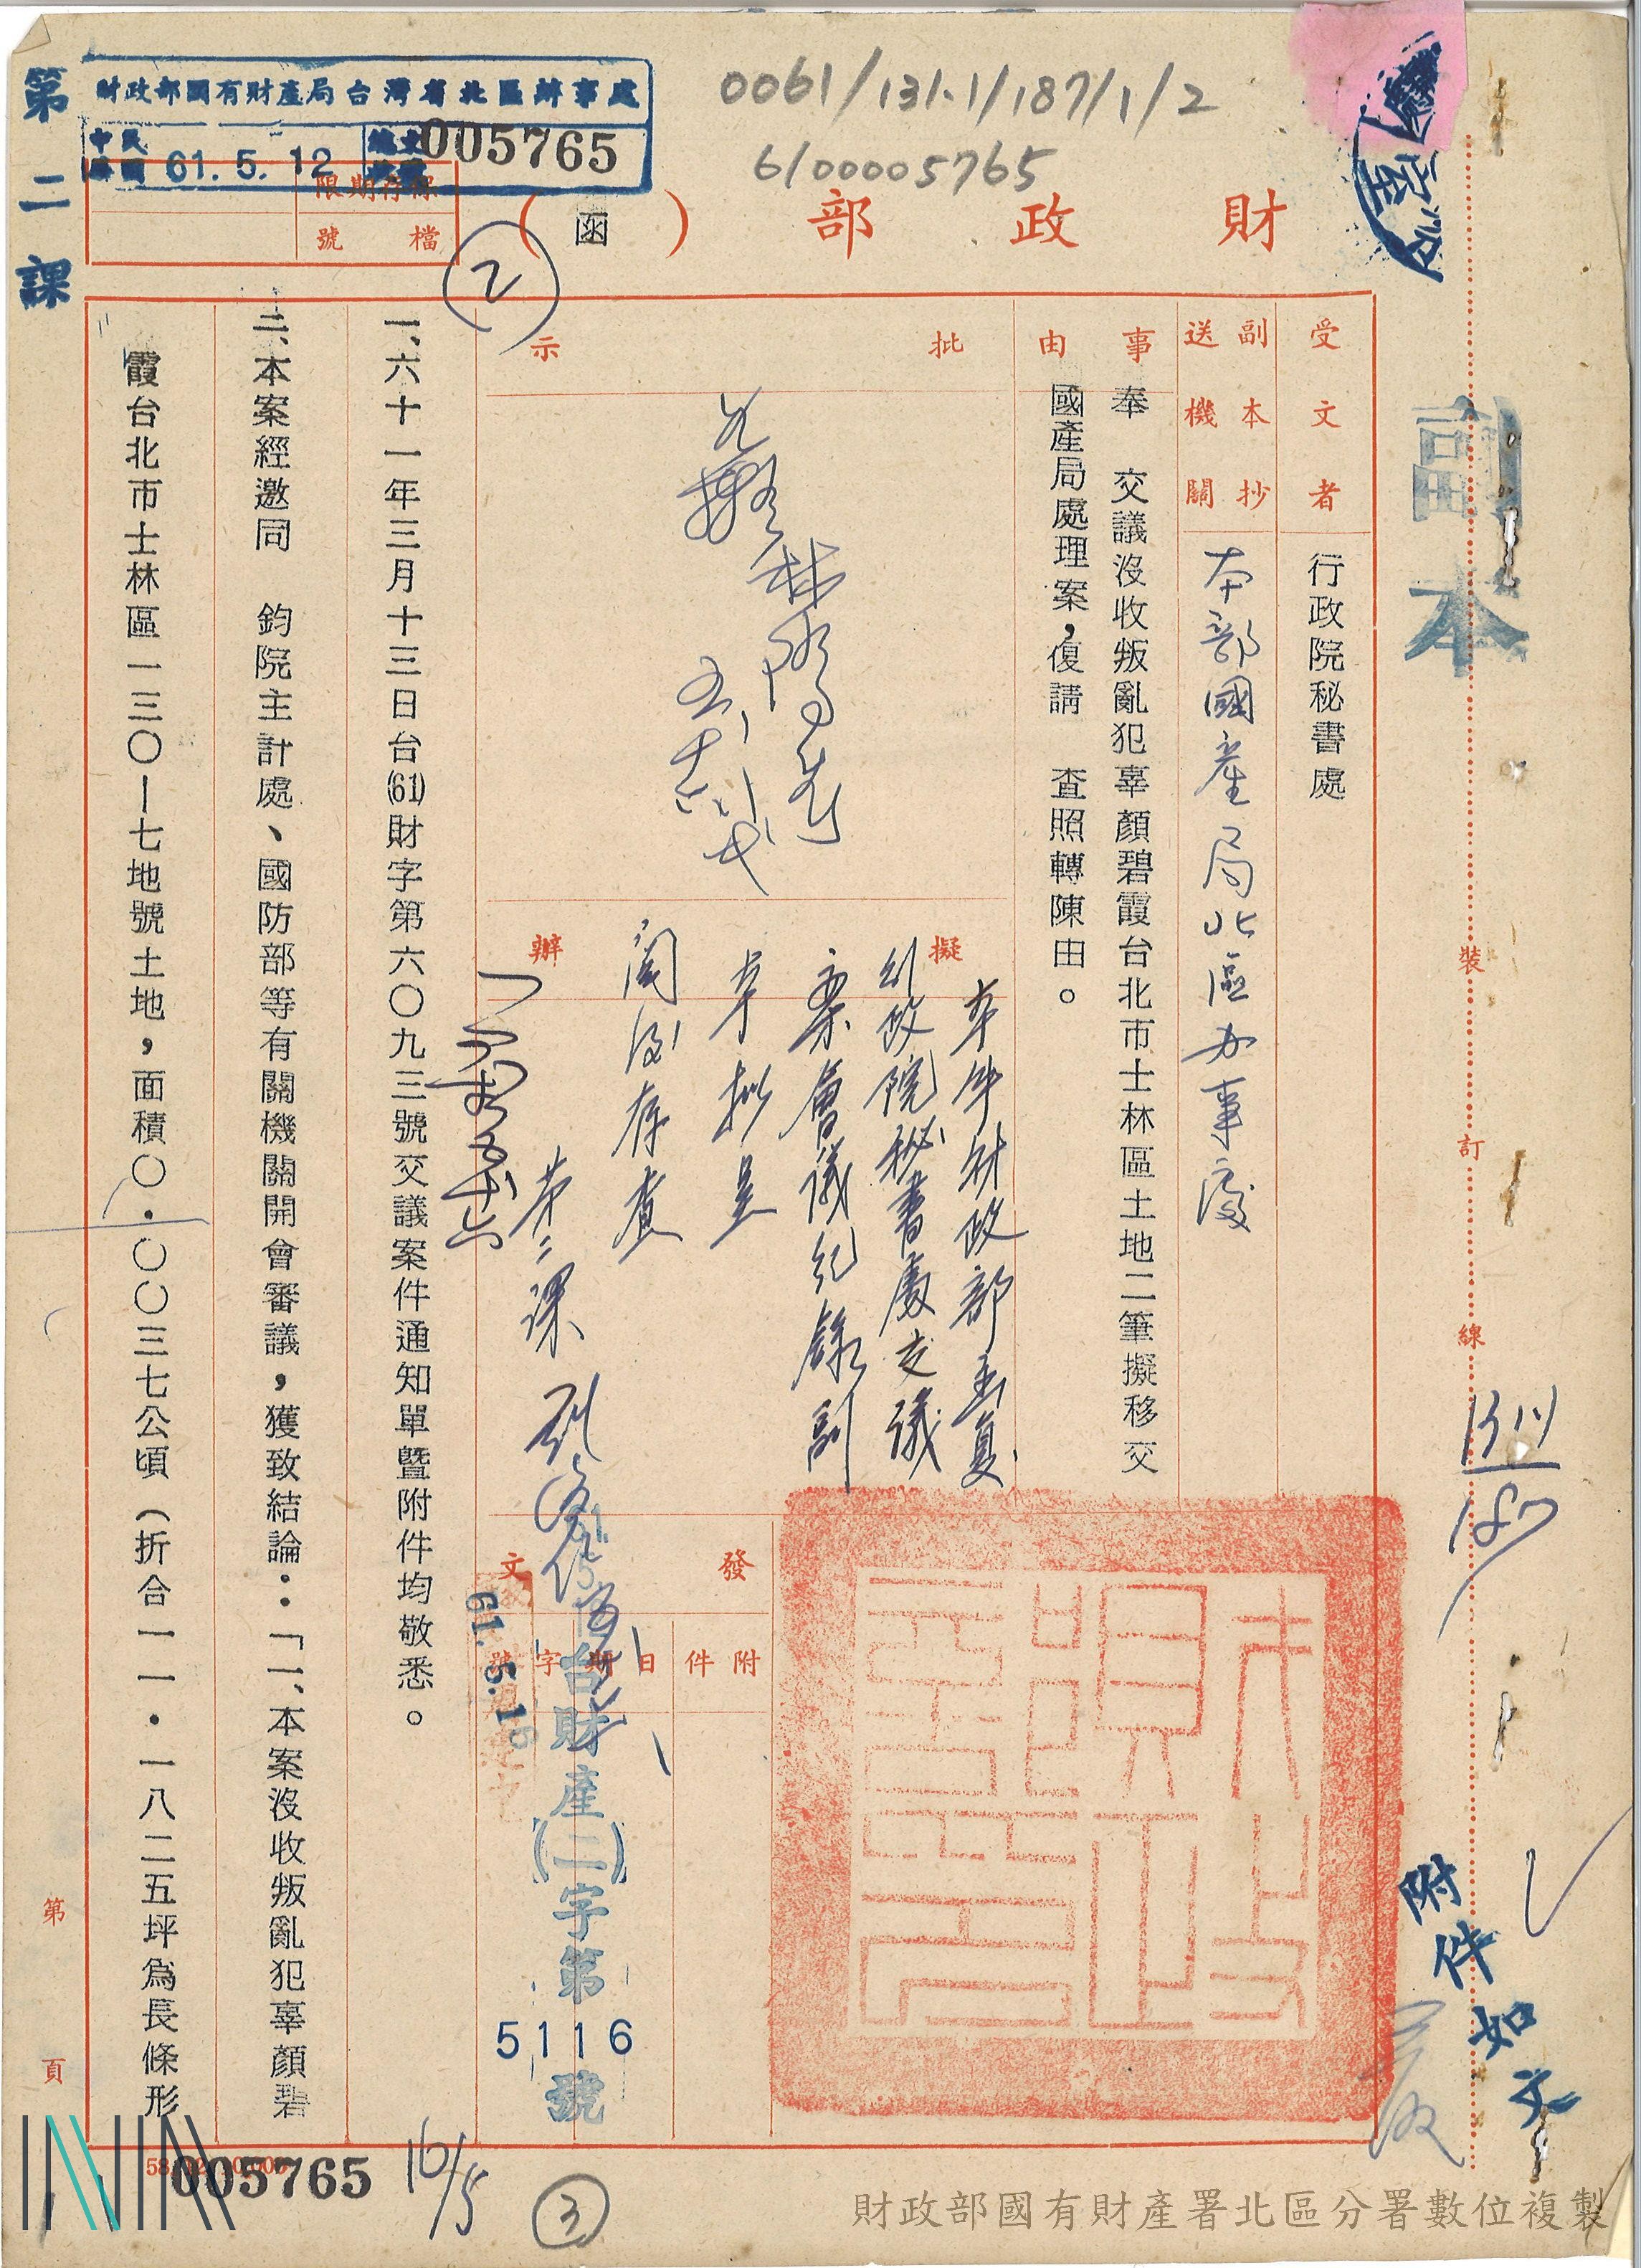 0061/131.1/187/1/2
6100005765
第二課
財政部國有財產局台灣省北區辦事處
中華民國 61.5.12
總收文號 005765
保存期限
檔號
財政部
(函)
副本
受文者
行政院秘書處
副本抄送機關
本部國產局北區办事處
事由
奉 交議沒收叛亂犯辜顏碧霞台北市士林區土地二筆擬移交
國產局處理案，復請 查照轉陳由。
批示
擬辦
本件財政部函復
行政院秘書處交議
案會議紀錄副
本擬呈
閱後存查
第二課
發文
附件
日期
字號
61.5.16
台財產(二)字第
5116
號
一、六十一年三月十三日台(61)財字第六〇九三號交議案件通知單暨附件均敬悉。
二、本案經邀同 鈞院主計處、國防部等有關機關開會審議，獲致結論：「一、本案沒收叛亂犯辜顏碧
霞台北市士林區一三〇—七地號土地，面積〇．〇〇三七公頃（折合一一．一八二五坪為長條形
裝訂線
1311
187
附件如文
第 頁
005765
16/5
②
③
財政部國有財產署北區分署數位複製